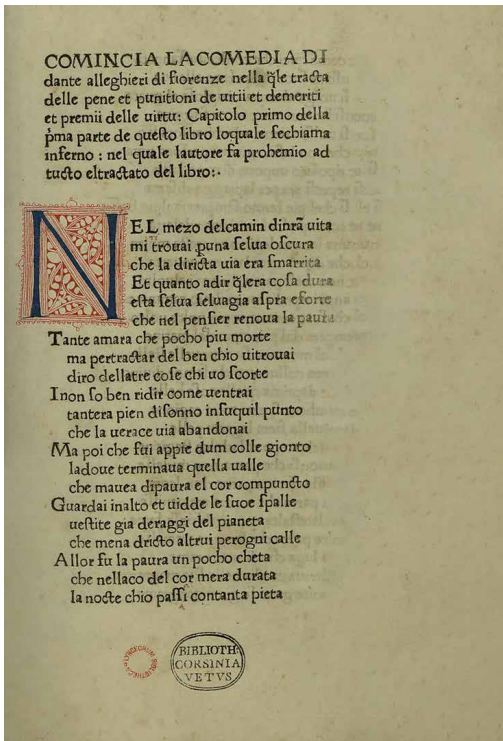 COMINCIA LACOMEDIA DI
dante alleghieri di fiorenze nella q̃le tracta
delle pene et punitioni de uitii et demeriti
et premii delle uirtu: Capitolo primo della
p̃ma parte de queſto libro loquale ſechiama
inferno : nel quale lautore fa prohemio ad
tucto eltractato del libro:·
NEL mezo delcamin dinrã uita
mi trouai ꝑuna ſelua oſcura
che la diricta uia era ſmarrita
Et quanto adir q̃lera coſa dura
eſta ſelua ſeluagia aſpra eforte
che nel penſier renoua la paura
Tante amara che pocho piu morte
ma pertractar del ben chio uitrouai
diro dellatre coſe chi uo ſcorte
Inon ſo ben ridir come uentrai
tantera pien diſonno inſuquil punto
che la uerace uia abandonai
Ma poi che fui appie dum colle gionto
ladoue terminaua quella ualle
che mauea dipaura el cor compuncto
Guardai inalto et uidde le ſuoe ſpalle
ueſtite gia deraggi del pianeta
che mena dricto altrui perogni calle
Allor fu la paura un pocho cheta
che nellaco del cor mera durata
la nocte chio paſſi contanta pieta
BIBLIOTH·
CORSINIA
VETVS